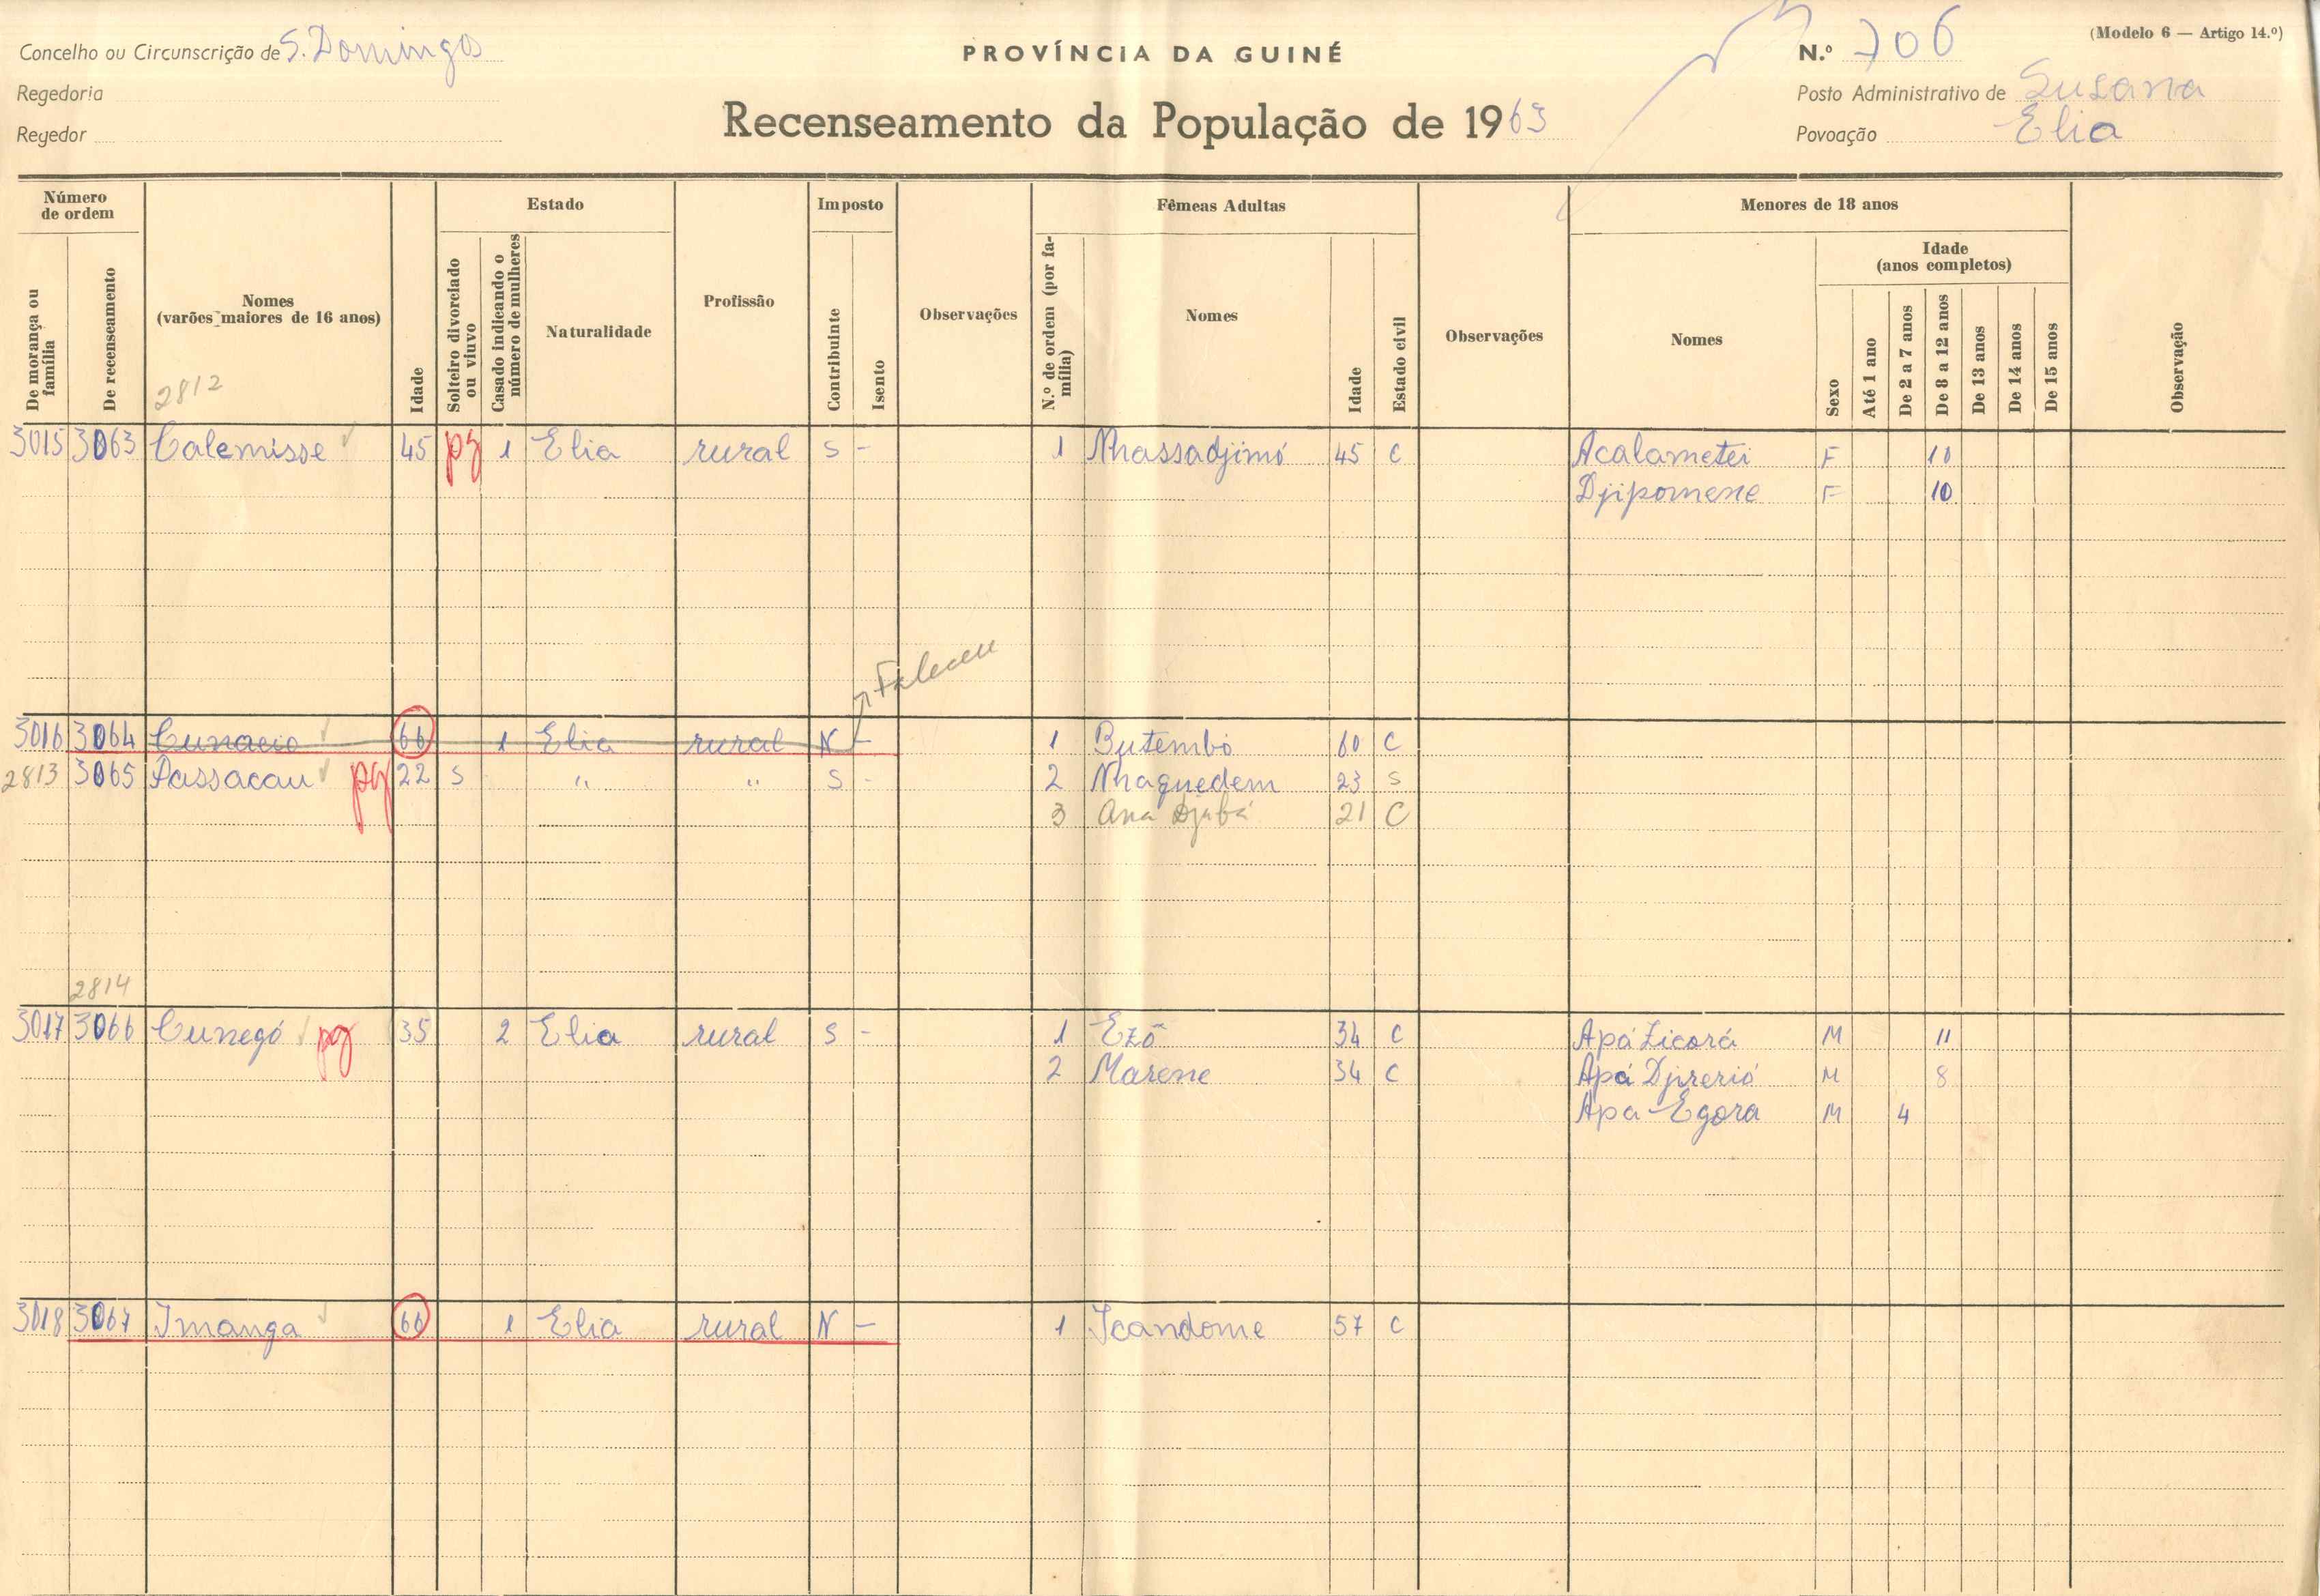 Concelho ou Circunscrição de S. Domingos
PROVÍNCIA DA GUINÉ
N.º 706
(Modelo 6 — Artigo 14.º)
Regedoria
Posto Administrativo de Susana
Regedor
Recenseamento da População de 1963
Povoação Elia
Número de ordem
Estado
Imposto
Fêmeas Adultas
Menores de 18 anos
De morança ou família
De recenseamento
Nomes (varões maiores de 16 anos)
Idade
Solteiro divorciado ou viuvo
Casado indicando o número de mulheres
Naturalidade
Profissão
Contribuinte
Isento
Observações
N.º de ordem (por família)
Nomes
Idade
Estado civil
Observações
Nomes
Sexo
Idade (anos completos)
Até 1 ano
De 2 a 7 anos
De 8 a 12 anos
De 13 anos
De 14 anos
De 15 anos
Observação
2812
3015 3063 Calemisse 45 pg 1 Elia rural S - 1 Nhassadjimó 45 C Acalametei F 10
Djipomene F 10
Faleceu
3016 3064 Cunacio 66 1 Elia rural N - 1 Butembó 60 C
2813 3065 Passacau pg 22 S " " S - 2 Nhaguedem 23 S
3 Ana Djubá 21 C
2814
3017 3066 Cunegó pg 35 2 Elia rural S - 1 Ezô 34 C Apá Licorá M 11
2 Marene 34 C Apá Djirerió M 8
Apa Egora M 4
3018 3067 Imanga 66 1 Elia rural N - 1 Icandome 57 C